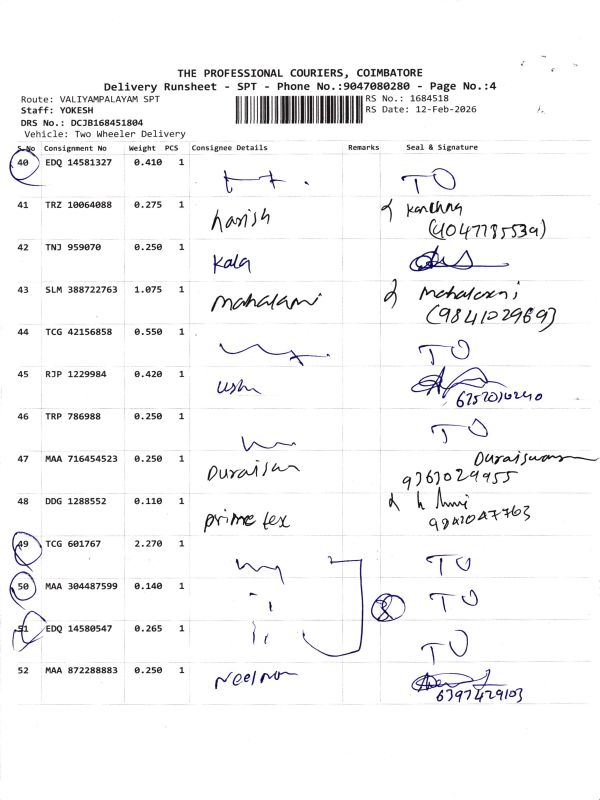 THE PROFESSIONAL COURIERS, COIMBATORE
Delivery Runsheet - SPT - Phone No.:9047080280 - Page No.:4
Route: VALIYAMPALAYAM SPT
RS No.: 1684518
Staff: YOKESH
RS Date: 12-Feb-2026
DRS No.: DCJB168451804
Vehicle: Two Wheeler Delivery
S.No Consignment No Weight PCS Consignee Details Remarks Seal & Signature
40 EDQ 14581327 0.410 1
TO
41 TRZ 10064088 0.275 1
harish
42 TNJ 959070 0.250 1
Kala
43 SLM 388722763 1.075 1
44 TCG 42156858 0.550 1
TO
45 RJP 1229984 0.420 1
46 TRP 786988 0.250 1
TO
47 MAA 716454523 0.250 1
9363029955
48 DDG 1288552 0.110 1
prime tex
49 TCG 601767 2.270 1
TO
50 MAA 304487599 0.140 1
8 TO
51 EDQ 14580547 0.265 1
TO
52 MAA 872288883 0.250 1
6397429103